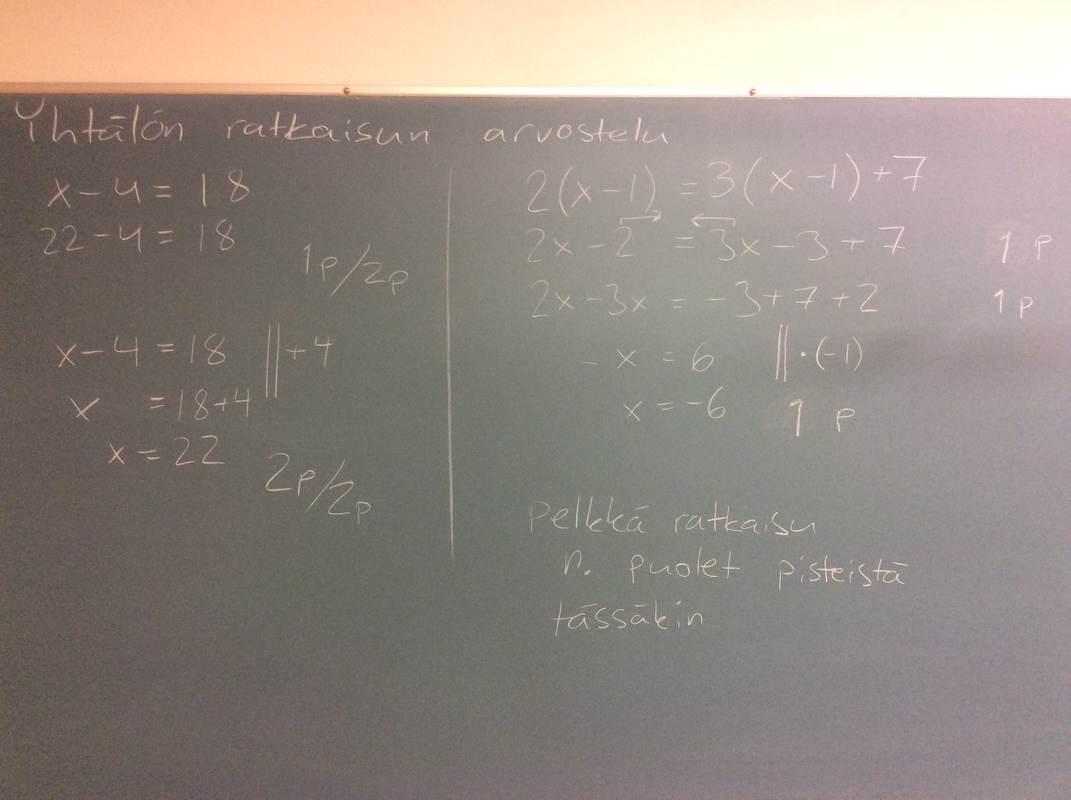 Yhtälön ratkaisun arvostelu
x-4 = 18
22-4 = 18
1p/2p
x-4 = 18 ||+4
x = 18+4
x = 22
2p/2p
2(x-1) = 3(x-1)+7
2x-2 = 3x-3+7 1 p
2x-3x = -3+7+2 1 p
-x = 6 ||·(-1)
x = -6 1 p
pelkkä ratkaisu
n. puolet pisteistä
tässäkin